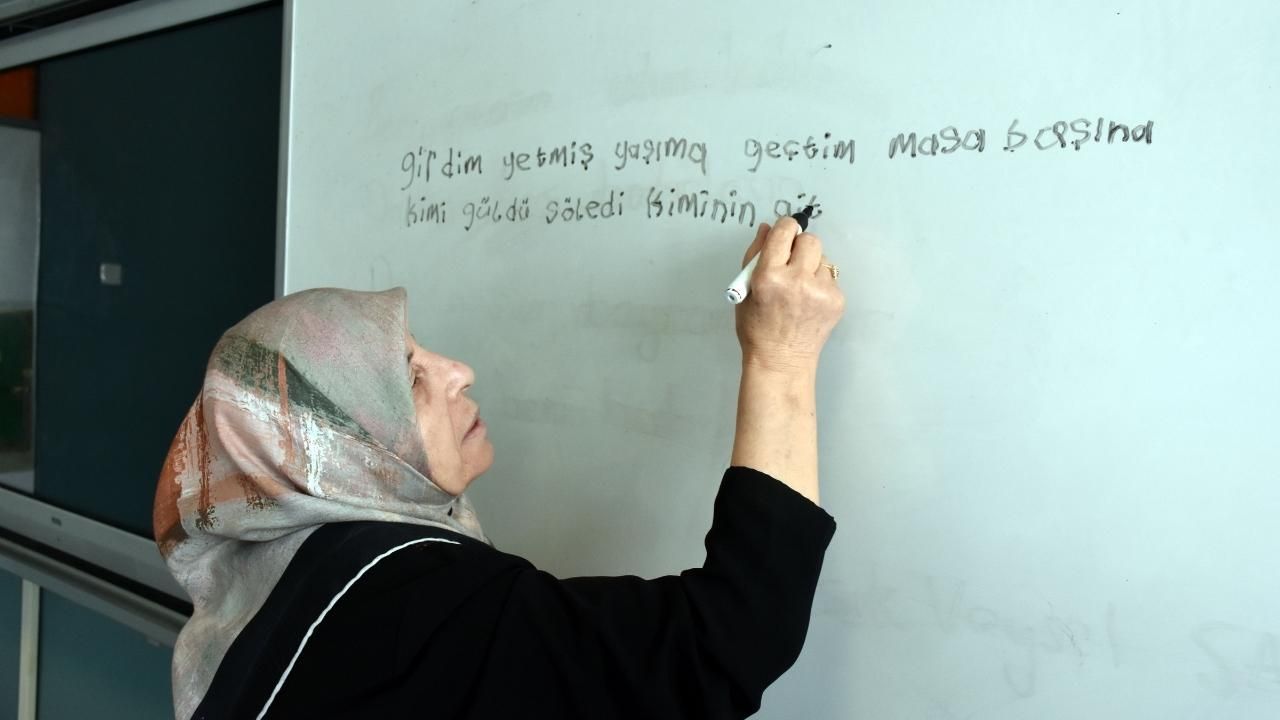 girdim yetmiş yaşıma geçtim masa başına
kimi güldü söledi kiminin git